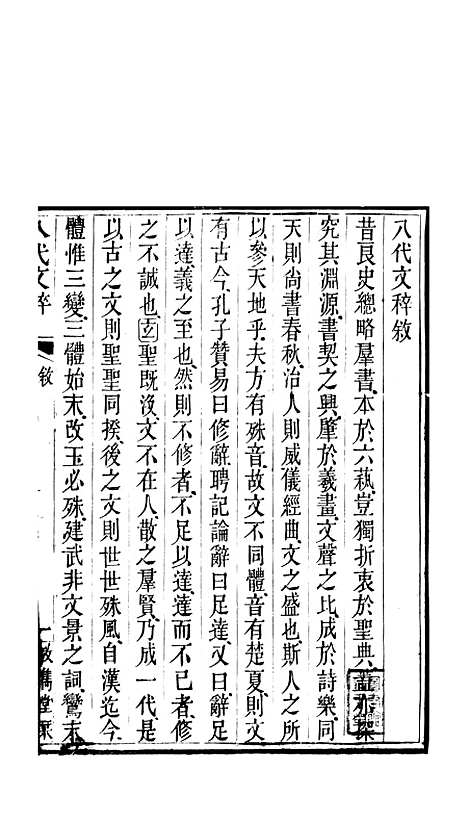 八代文稡敘
昔良史總略羣書本於六蓺豈獨折衷於聖典蓋亦探
究其淵源書契之興肇於羲畫文聲之比成於詩樂同
天則尚書春秋治人則威儀經曲文之盛也斯人之所
以參天地乎夫方有殊音故文不同體音有楚夏則文
有古今孔子贊易曰修辭聘記論辭曰足達又曰辭足
以達義之至也然則不修者不足以達達而不已者修
之不誠也玄聖既沒文不在人散之羣賢乃成一代是
以古之文則聖聖同揆後之文則世世殊風自漢迄今
體惟三變三體始末改玉必殊建武非文景之詞鸞末
八代文稡 敘 一